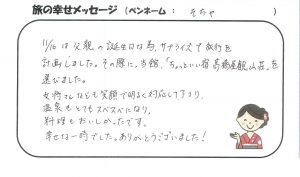 旅の幸せメッセージ（ペンネーム： そちゃ ）
11/16は父親の誕生日な為、サプライズで旅行を
計画しました。その際に、当館、「ちょっといい宿 高橋屋観山荘」を
選びました。
女将さんなども笑顔で明るく対応して下さり、
温泉もとてもスベスベになり、
料理もおいしかったです。
幸せな一時でした。ありがとうございました！